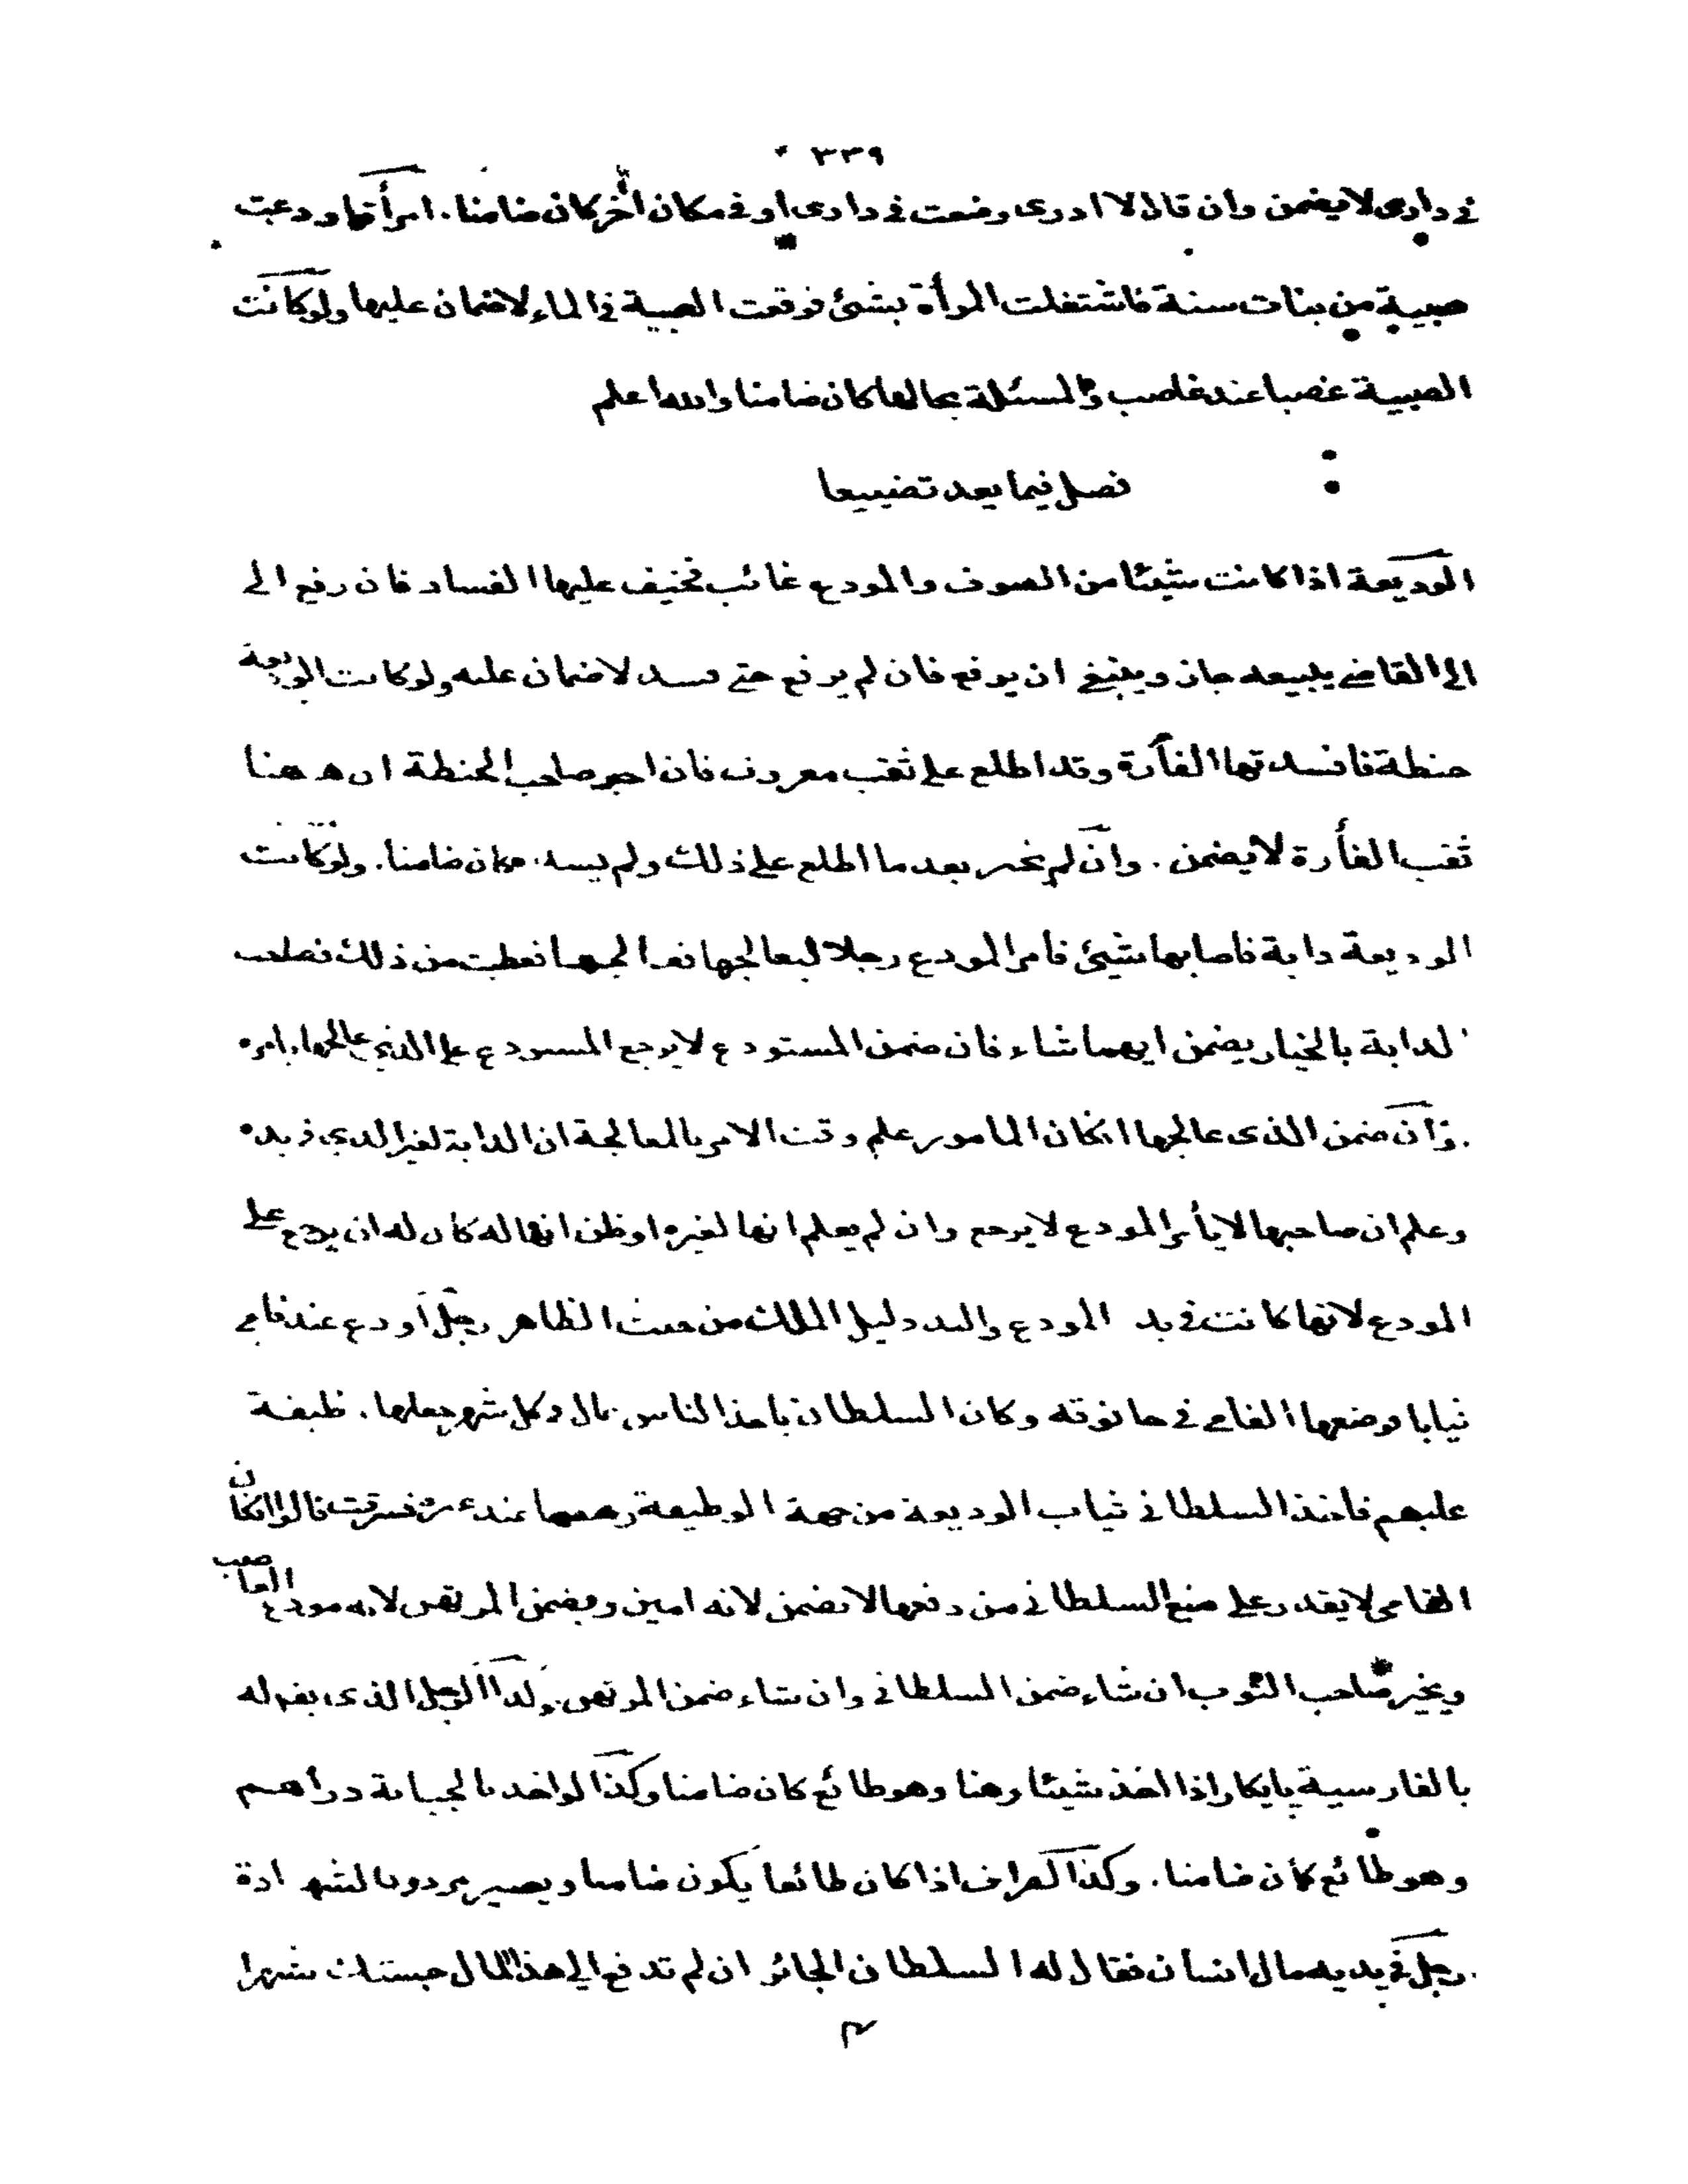 ٣٣٩
في دارى لا يضمن وان قال لا ادرى وضعت في دارى او في مكان آخر كان ضامنا . امرأة او دعت
صبية من بنات سنة فاشتغلت المرأة بشئ فوقعت الصبية في الماء لا ضمان عليها ولو كانت
الصبية غصبا عند غاصب والمسئلة بحالها كان ضامنا والله اعلم
فصل فيما يعد تضييعا
الوديعة اذا كانت شيئا من الصوف والمودع غائب فخيف عليها الفساد فان رفع الى
الى القاضي يبيعه جاز وينبغي ان يرفع فان لم يرفع حتى فسد لا ضمان عليه ولو كانت الوديعة
حنطة فافسدتها الفأرة وقد اطلع على ثقب معروف فان اخبر صاحب الحنطة ان ههنا
ثقب الفأرة لا يضمن . وان لم يخبر بعد ما اطلع على ذلك ولم يسده كان ضامنا . ولو كانت
الوديعة دابة فاصابها شيئ فأمر المودع رجلا ليعالجها فعالجها فعطبت من ذلك فصاحب
الدابة بالخيار يضمن ايهما شاء فان ضمن المستودع لا يرجع المستودع على الذي عالجها بامره
. وان ضمن الذى عالجها انكان المامور علم وقت الامر بالمعالجة ان الدابة لغير الذي في يده
وعلم ان صاحبها لا يأمر المودع لا يرجع وان لم يعلم انها لغيره او ظن انها له كان له ان يرجع على
المودع لانها كانت في يد المودع واليد دليل الملك من حيث الظاهر رجل أودع عند فامي
ثيابا فوضعها الفامي في حانوته وكان السلطان ياخذ الناس بمال في كل شهر جعلها وظيفة
عليهم فأخذ السلطاني ثياب الوديعة من جهة الوظيفة ورهنها عند غيره فسرقت قالوا انكان
الفامي لا يقدر على منع السلطاني من رفعها لا يضمن لانه امين ويضمن المرتهن لانه مودع الغاصب
ويخير صاحب الثوب ان شاء ضمن السلطاني وان شاء ضمن المرتهن وكذا الرجل الذى يقال له
بالفارسية پايكار اذا اخذ شيئا رهنا وهو طائع كان ضامنا وكذا لو اخذ بالجباية دراهم
وهو طائع كان ضامنا . وكذا الصراف اذا كان طائعا يكون ضامنا ويصير مردود الشهادة
. رجل في يديه مال انسان فقال له السلطان الجائر ان لم تدفع الي هذا المال حبستك شهرا